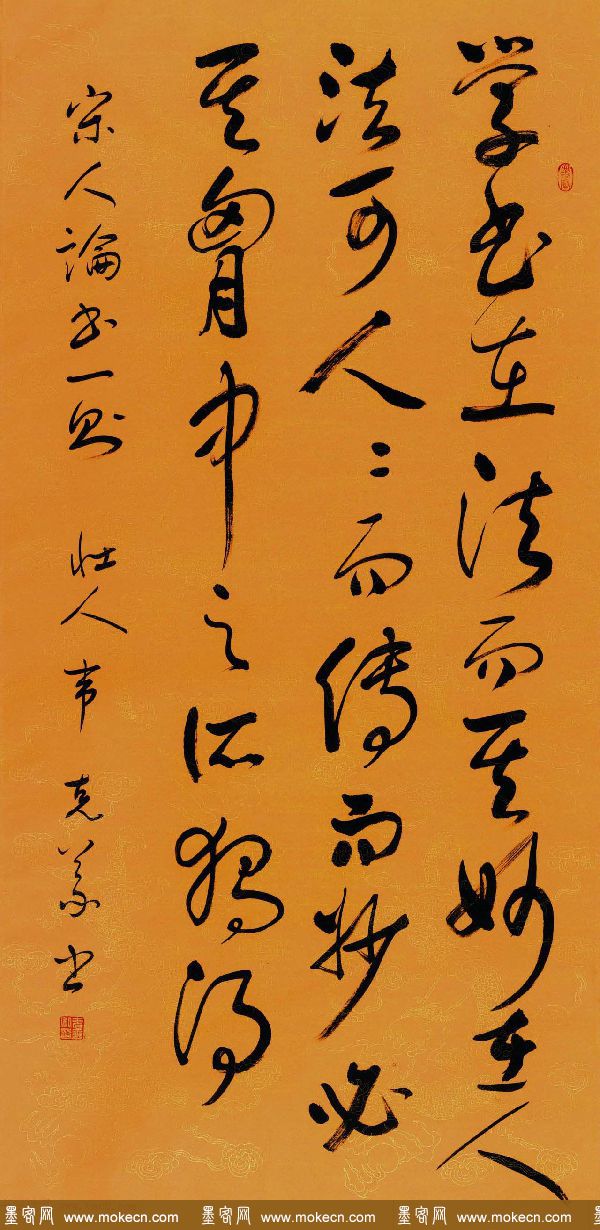 学书在法而其妙在人
法可人〻而傳而妙必
其胷中之所獨得
宋人論书一则 壮人韦克義书
墨客网 www.mokecn.com 墨客网 www.mokecn.com 墨客网 www.mokecn.com